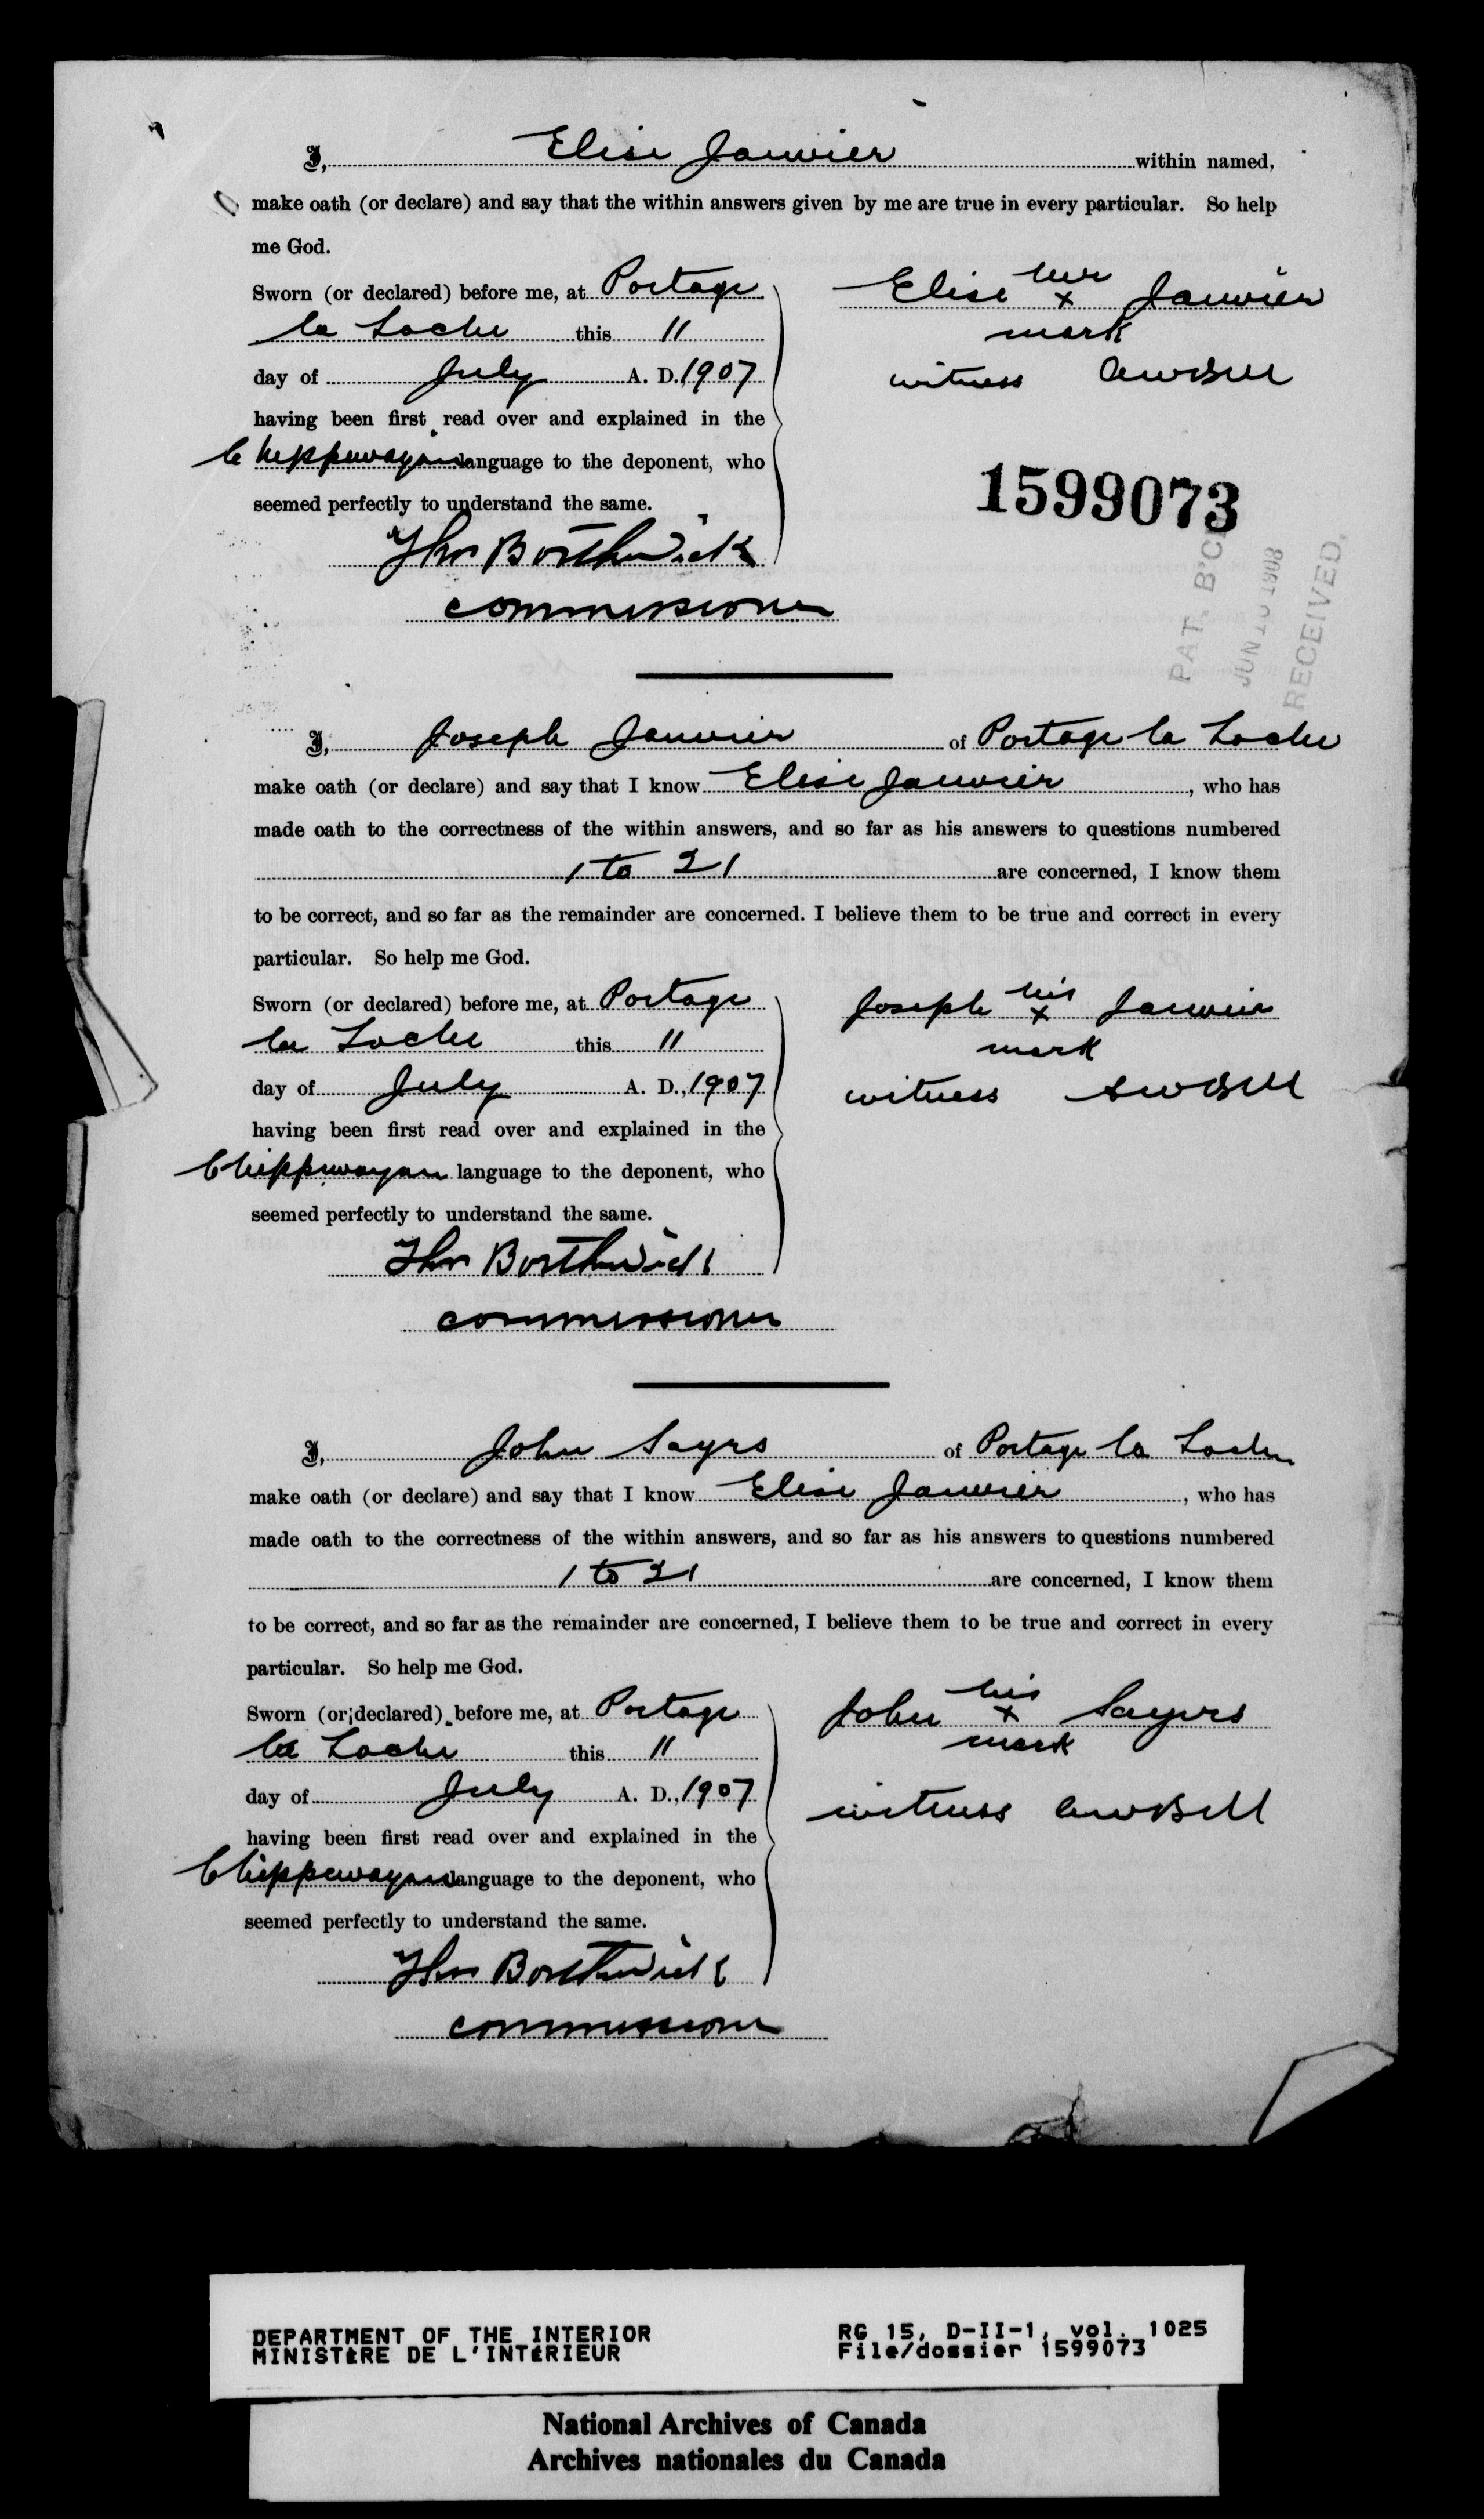 I, Elise Janvier within named,
make oath (or declare) and say that the within answers given by me are true in every particular. So help
me God.
Sworn (or declared) before me, at Portage
la Loche this 11
day of July A. D. 1907
having been first read over and explained in the
Chippewayan language to the deponent, who
seemed perfectly to understand the same.
Elise her x Janvier
mark
witness AWBell
Thos Borthwick
commissioner
1599073
PAT. B'CH
JUN 10 1908
RECEIVED.
I, Joseph Janvier of Portage la Loche
make oath (or declare) and say that I know Elise Janvier, who has
made oath to the correctness of the within answers, and so far as his answers to questions numbered
1 to 21 are concerned, I know them
to be correct, and so far as the remainder are concerned. I believe them to be true and correct in every
particular. So help me God.
Sworn (or declared) before me, at Portage
la Loche this 11
day of July A. D., 1907
having been first read over and explained in the
Chippewayan language to the deponent, who
seemed perfectly to understand the same.
Joseph his x Janvier
mark
witness AWBell
Thos Borthwick
commissioner
I, John Sayrs of Portage la Loche
make oath (or declare) and say that I know Elise Janvier, who has
made oath to the correctness of the within answers, and so far as his answers to questions numbered
1 to 21 are concerned, I know them
to be correct, and so far as the remainder are concerned, I believe them to be true and correct in every
particular. So help me God.
Sworn (or declared) before me, at Portage
la Loche this 11
day of July A. D., 1907
having been first read over and explained in the
Chippewayan language to the deponent, who
seemed perfectly to understand the same.
John his x Sayers
mark
witness AWBell
Thos Borthwick
commissioner
DEPARTMENT OF THE INTERIOR
MINISTÈRE DE L'INTÉRIEUR
RG 15, D-II-1, vol. 1025
File/dossier 1599073
National Archives of Canada
Archives nationales du Canada